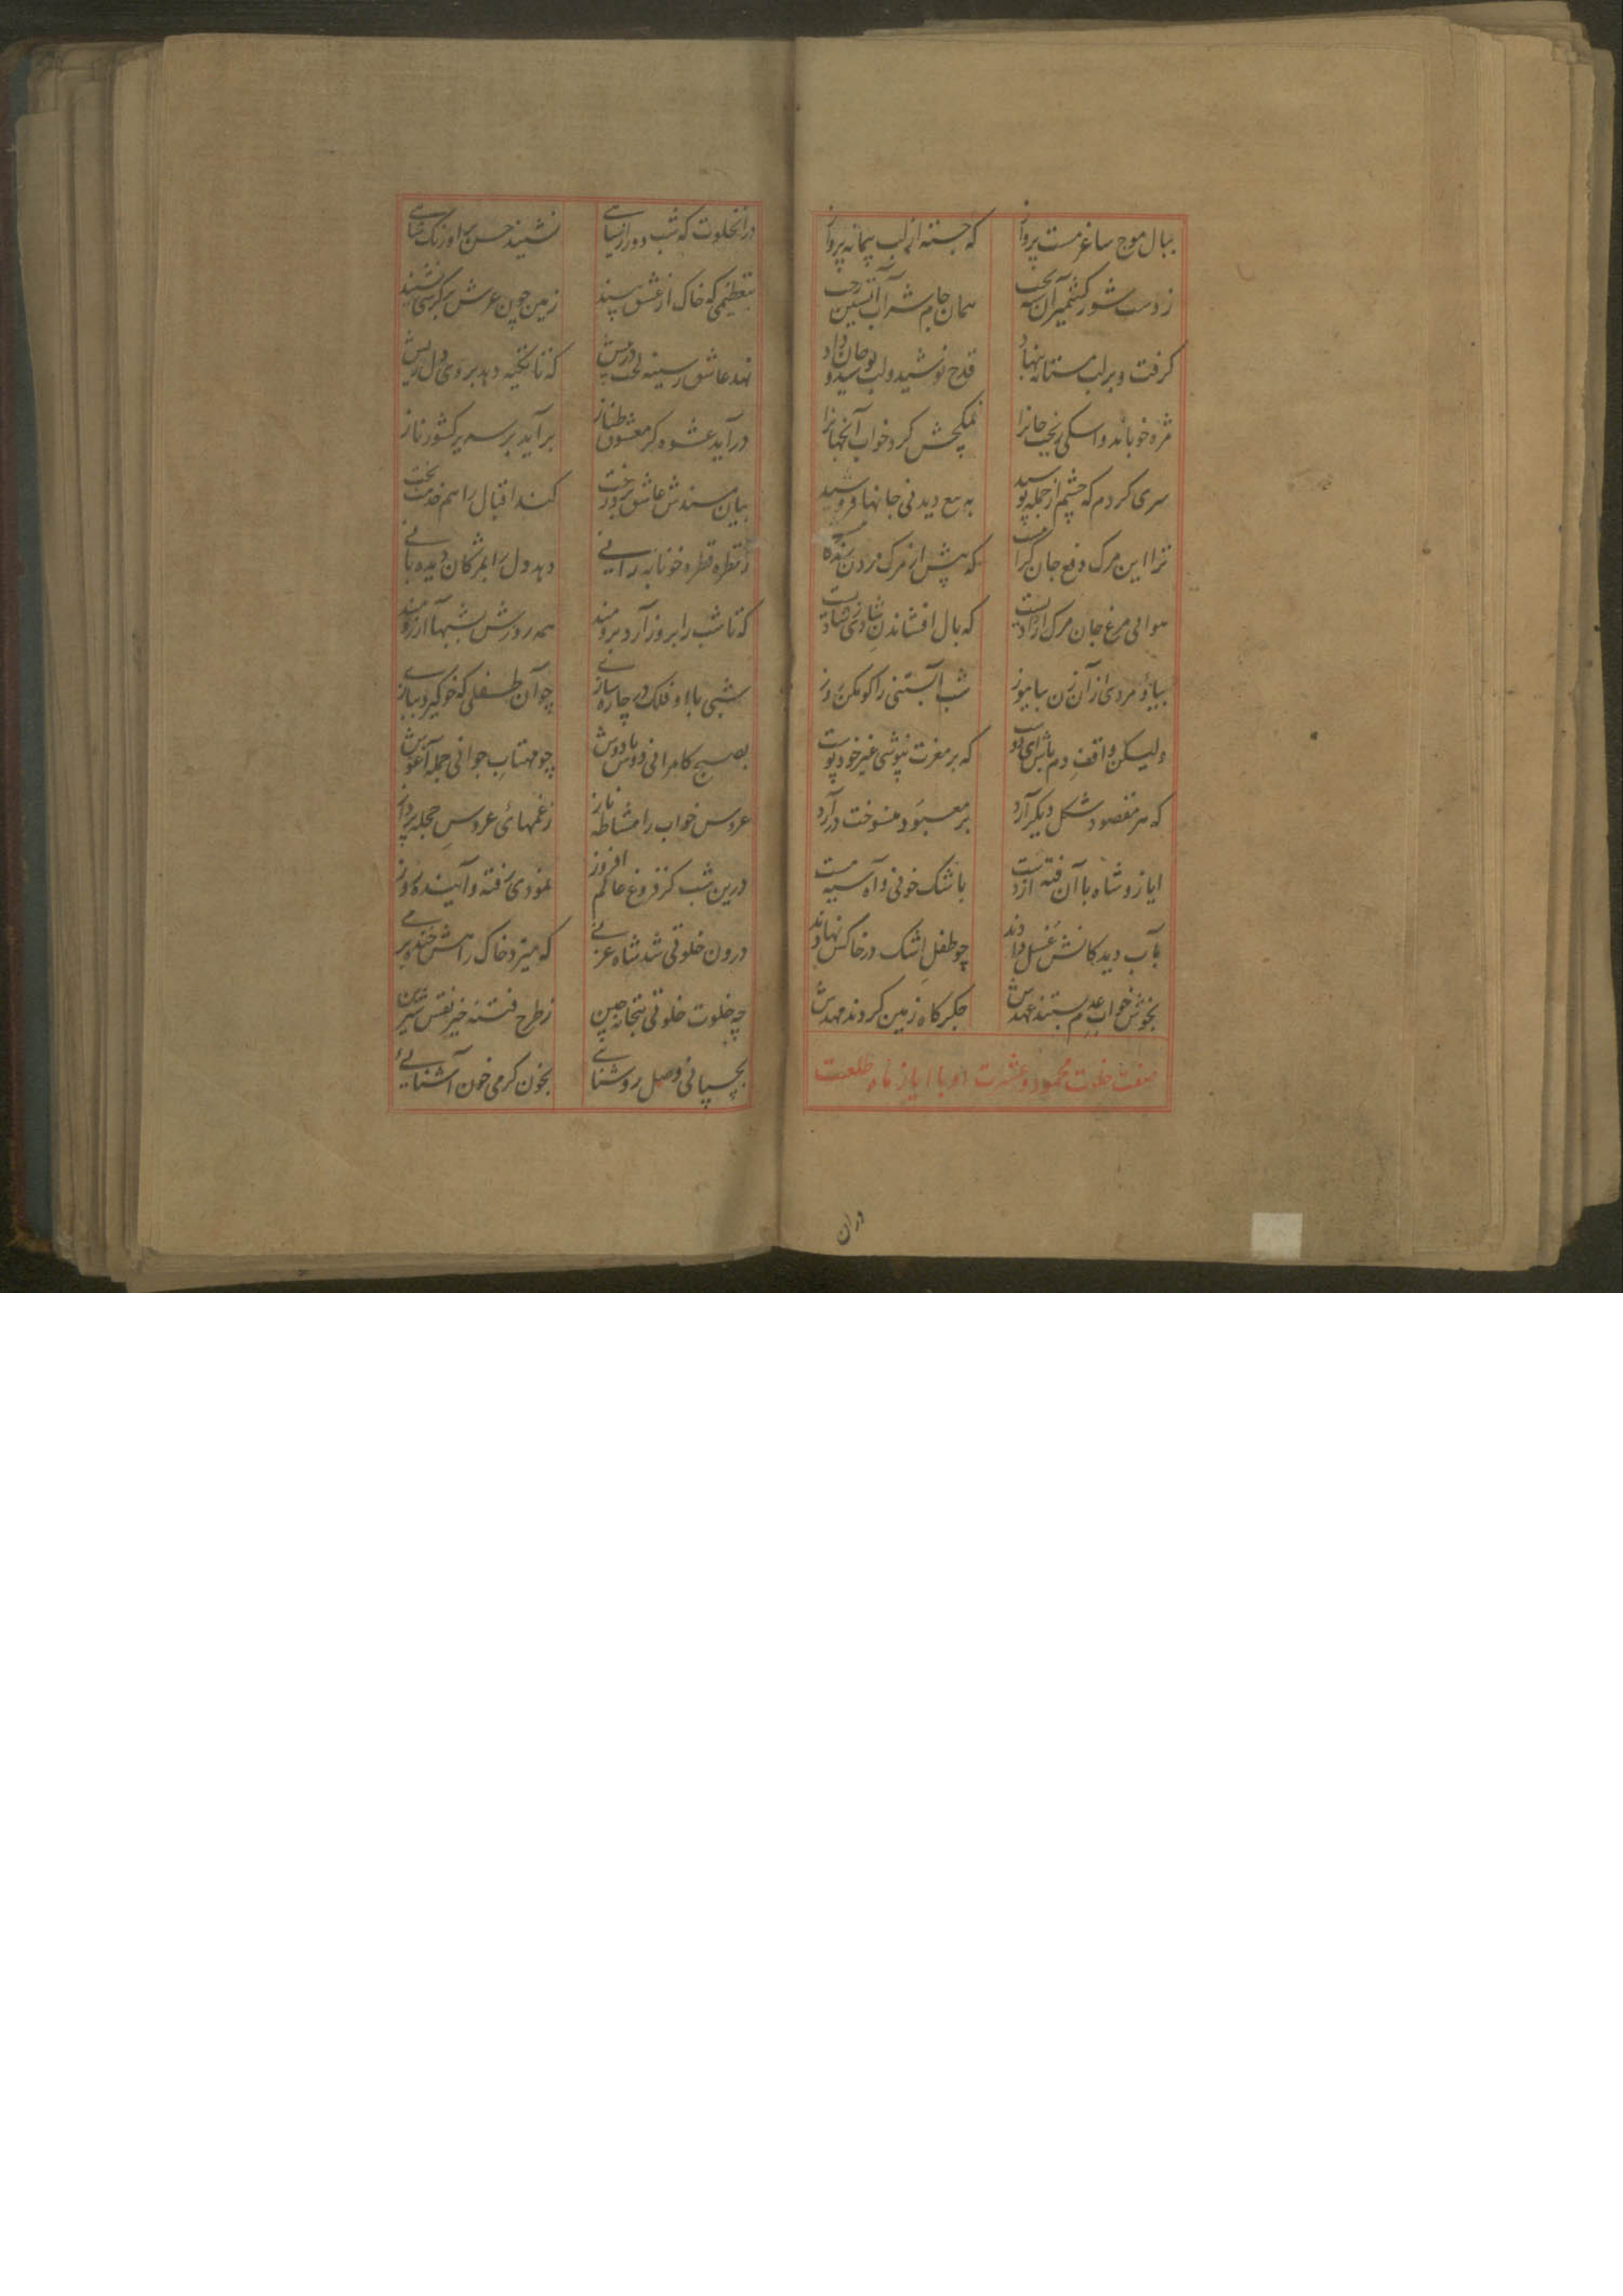 ببال موج ساغر مست پرواز که جسته از لب پیمانه پرواز
ز دست شور کشمیر آن بخت همان جام شراب آتشین رخت
گرفت و بر لب مستانه بنهاد قدح نوشید و لب بوسید و جان داد
مژه خوباند و نمکچش کرد خواب آنجهانرا
سری کردم که چشم از جمله پوسید به دیدنی جانها فروشید
ترا این مرک دفع جان که پیش از مرک مردن
هوائی مرغ جان مرک آزادیست که بال افشاندن شادیست
بیا و مردی از آن زن بیاموز شب آبستنی را کو مکن روز
ولیکن واقف دم باش ای دوست که بر مغزت نپوشی غیر خود پوست
که هر مقصود شکل دیگر آرد بر معبود منسوخت در آرد
ایاز و شاه با آن فتنه از دست باشک خونی و آه سیه مست
بآب دیدگانش غسل دادند چو طفل اشک در خاکش نهادند
بخوش خواب عدم بستند عهدش جگرگاه زمین کردند مهدش
صفت خلوت محمود و عشرت او با ایاز ماه طلعت
دران
در انخلوت که شب دور از سیاهی نشیند حسن بر اورنک شاهی
بتعظیمی که خاک از عشق بیند زمین چون عرش بر کرسی نشیند
نهد عاشق ز سینه لخت درپیش که تا تکیه دهد بر وی دل ریش
در آید عشوه گر معشوق طناز بر آید بر سریر کشور ناز
بپای مسندش عاشق برد رخت کند اقبال را هم خدمت بخت
ز قطره قطره خونابه رانی دهد دل را بمژگان دیده بانی
که تا شب را بروز آرد برومند همه روزش بشبها آرزومند
شبی با او فلک در چاره سازی چو آن طفلی که خو گیرد ببازی
بصبح کامرانی دوش با دوش چو مهتاب جوانی جمله آغوش
عروس خواب را مشاطه ناز زغمهای عروس حجله پرداز
درین شب کز فروغ عالم افروز نمودی رفته و آینده روز
درون خلوتی شد شاه غزنی که میزد خاک راهش خنده بر
چه خلوت خلوتی بتخانه چین ز طرح فتنه خیز نقش شیرین
بچسپانی وصل روشنائی بخون گرمی خون آشنائی